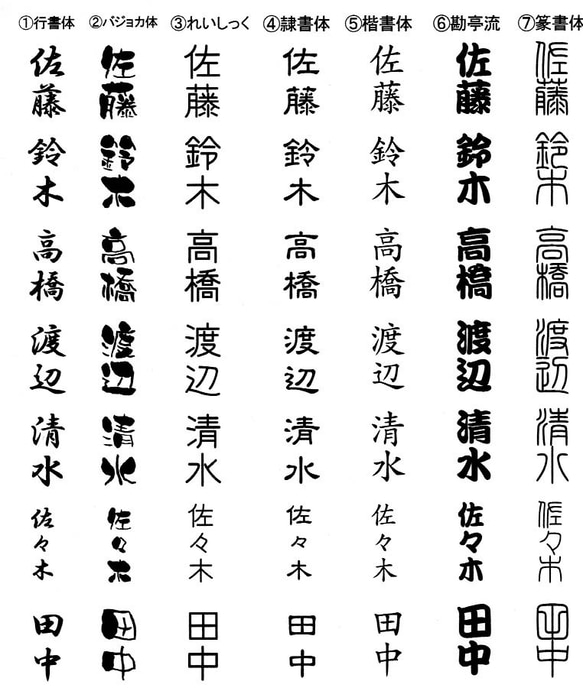 ①行書体 ②パジョカ体 ③れいしっく ④隷書体 ⑤楷書体 ⑥勘亭流 ⑦篆書体
佐藤 佐藤 佐藤 佐藤 佐藤 佐藤 佐藤
鈴木 鈴木 鈴木 鈴木 鈴木 鈴木 鈴木
高橋 高橋 高橋 高橋 高橋 高橋 高橋
渡辺 渡辺 渡辺 渡辺 渡辺 渡辺 渡辺
清水 清水 清水 清水 清水 清水 清水
佐々木 佐々木 佐々木 佐々木 佐々木 佐々木 佐々木
田中 田中 田中 田中 田中 田中 田中